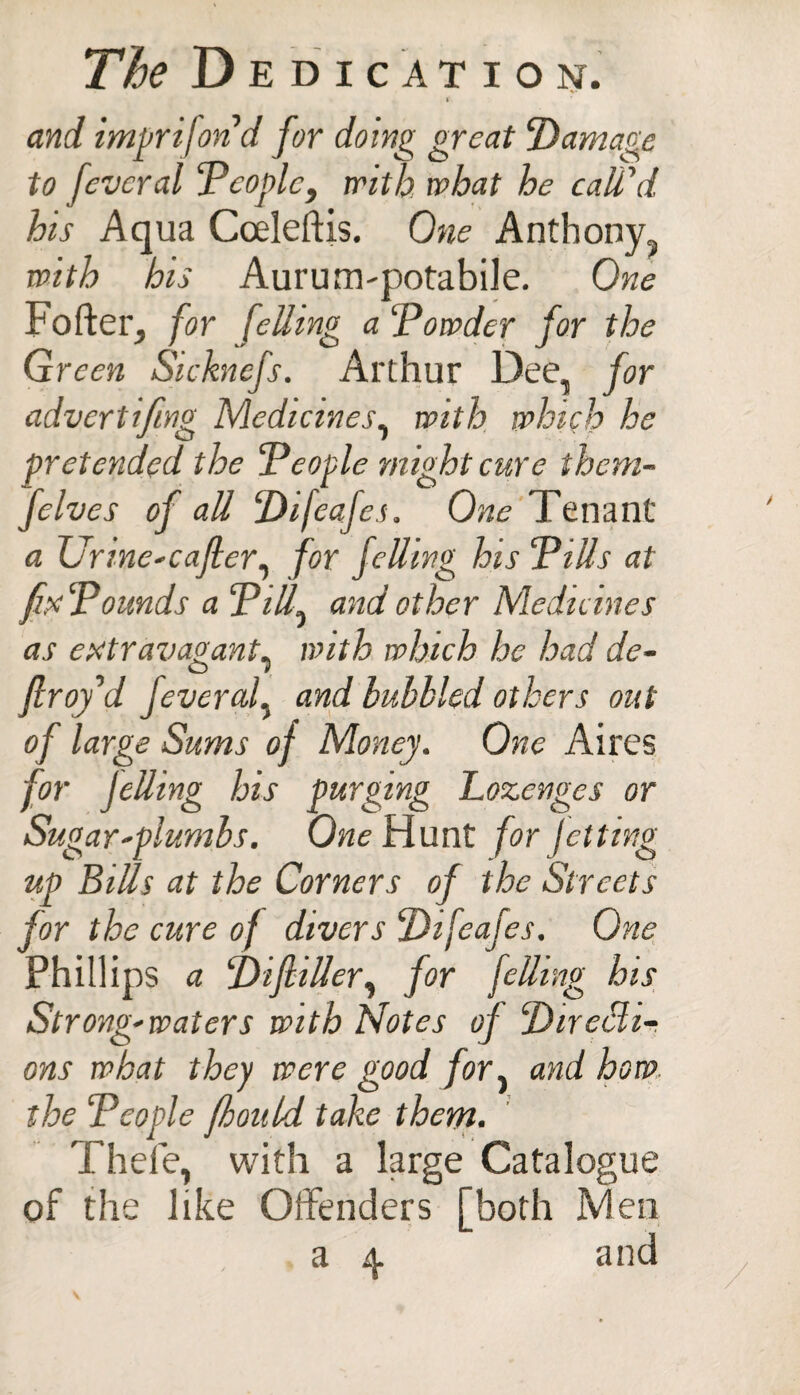 The DEDICATION.
and impriſon'd for doing great Damage
to ſeveral People, with what he call'd
his Aqua Cœleſtis. One Anthony,
with his Aurum-potabile. One
Foſter, for ſelling a Powder for the
Green Sickneſs. Arthur Dee, for
advertiſing Medicines, with which he
pretended the People might cure them-
ſelves of all Diſeaſes. One Tenant
a Urine-caſter, for ſelling his Pills at
ſix Pounds a Pill, and other Medicines
as extravagant, with which he had de-
ſtroy'd ſeveral, and bubbled others out
of large Sums of Money. One Aires
for ſelling his purging Lozenges or
Sugar-plumbs. One Hunt for ſetting
up Bills at the Corners of the Streets
for the cure of divers Diſeaſes. One
Phillips a Diſtiller, for ſelling his
Strong-waters with Notes of Directi-
ons what they were good for, and how
the People ſhould take them.
Theſe, with a large Catalogue
of the like Offenders [both Men
a 4 and